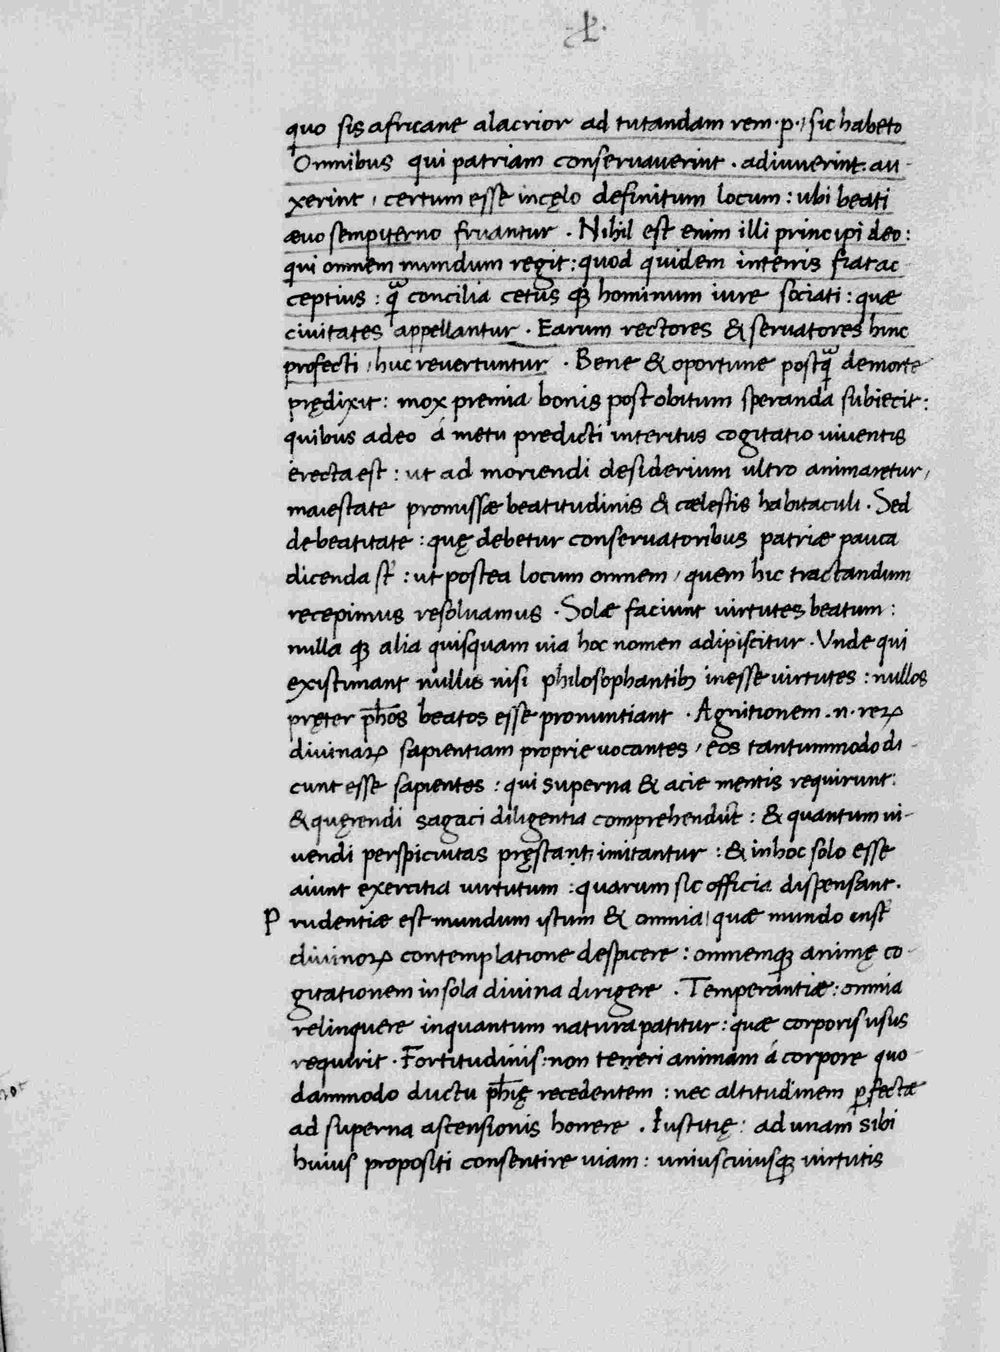 quo sis africane alacrior ad tutandam rem.p., sic habeto
Omnibus qui patriam conservauerint . adiuuerint. au-
xerint, certum esse incęlo definitum locum : ubi beati
æuo sempiterno fruantur . Nihil est enim illi principi deo:
qui omnem mundum regit: quod quidem interris fiat ac-
ceptius : quā concilia cetus qꝫ hominum iure sociati : quæ
ciuitates appellantur . Earum rectores & seruatores hinc
profecti, huc reuertuntur . Bene & oportune postquā demorte
prędixit: mox premia bonis post obitum speranda subiecit:
quibus adeo á metu predicti interitus cogitatio uiuentis
erecta est : ut ad moriendi desiderium ultro animaretur,
maiestate promissæ beatitudinis & cælestis habitaculi . Sed
de beatitate : quę debetur conseruatoribus patriæ pauca
dicenda st̄ : ut postea locum omnem, quem hic tractandum
recepimus resoluamus . Solæ faciunt uirtutes beatum :
nulla qꝫ alia quisquam uia hoc nomen adipiscitur . Vnde qui
existimant nullis nisi philosophantibꝫ inesse uirtutes : nullos
pręter ph̄os beatos esse pronuntiant . Agnitionem .n. reꝝ
diuinaꝝ sapientiam proprie uocantes, eos tantummodo di-
cunt esse sapientes : qui superna & acie mentis requirunt:
& quęrendi sagaci diligentia comprehendūt : & quantum ui-
uendi perspicuitas pręstant imitantur : & inhoc solo esse
aiunt exercitia uirtutum : quarum sic officia dispensant.
Prudentiæ est mundum istum & omnia, quæ mundo inst̄
diuinoꝝ contemplatione despicere : omnemqꝫ animę co-
gitationem in sola diuina dirigere . Temperantiæ: omnia
relinquere inquantum natura patitur : quæ corporis usus
requirit . Fortitudinis: non terreri animam á corpore quo-
dammodo ductu ph̄ię recedentem : nec altitudinem ꝑfectæ
ad superna ascensionis horrere . Iustitię: ad unam sibi
huius propositi consentire uiam: uniuscuiusqꝫ uirtutis